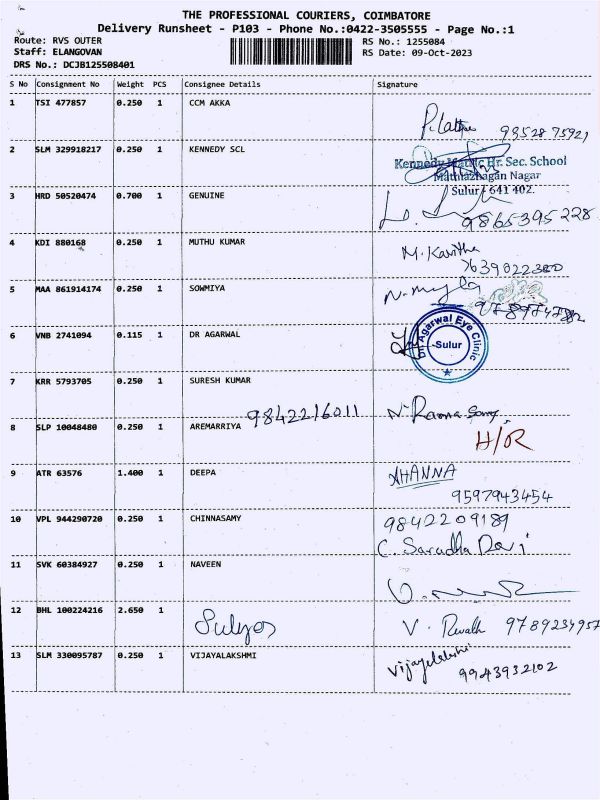 THE PROFESSIONAL COURIERS, COIMBATORE
Delivery Runsheet - P103 - Phone No.:0422-3505555 - Page No.:1
Route: RVS OUTER
RS No.: 1255084
Staff: ELANGOVAN
RS Date: 09-Oct-2023
DRS No.: DCJB125508401
S No Consignment No Weight PCS Consignee Details Signature
1 TSI 477857 0.250 1 CCM AKKA
P. Latha 9352875921
2 SLM 329918217 0.250 1 KENNEDY SCL
Kennedy Matric Hr. Sec. School
Mathiazhagan Nagar
Sulur - 641 402.
3 HRD 50520474 0.700 1 GENUINE
9865395228
4 KDI 880168 0.250 1 MUTHU KUMAR
M. Kavitha
7639022380
5 MAA 861914174 0.250 1 SOWMIYA
6 VNB 2741094 0.115 1 DR AGARWAL
Dr. Agarwal Eye Clinic
Sulur
7 KRR 5793705 0.250 1 SURESH KUMAR
9842216011 N. Rama Samy
8 SLP 10048480 0.250 1 AREMARRIYA
H/R
9 ATR 63576 1.400 1 DEEPA
AHANNA
9597943454
10 VPL 944290720 0.250 1 CHINNASAMY
9842209189
C. Saradha Devi
11 SVK 60384927 0.250 1 NAVEEN
12 BHL 100224216 2.650 1
V. Revath 9789234957
13 SLM 330095787 0.250 1 VIJAYALAKSHMI
Vijayalakshi
9943932102